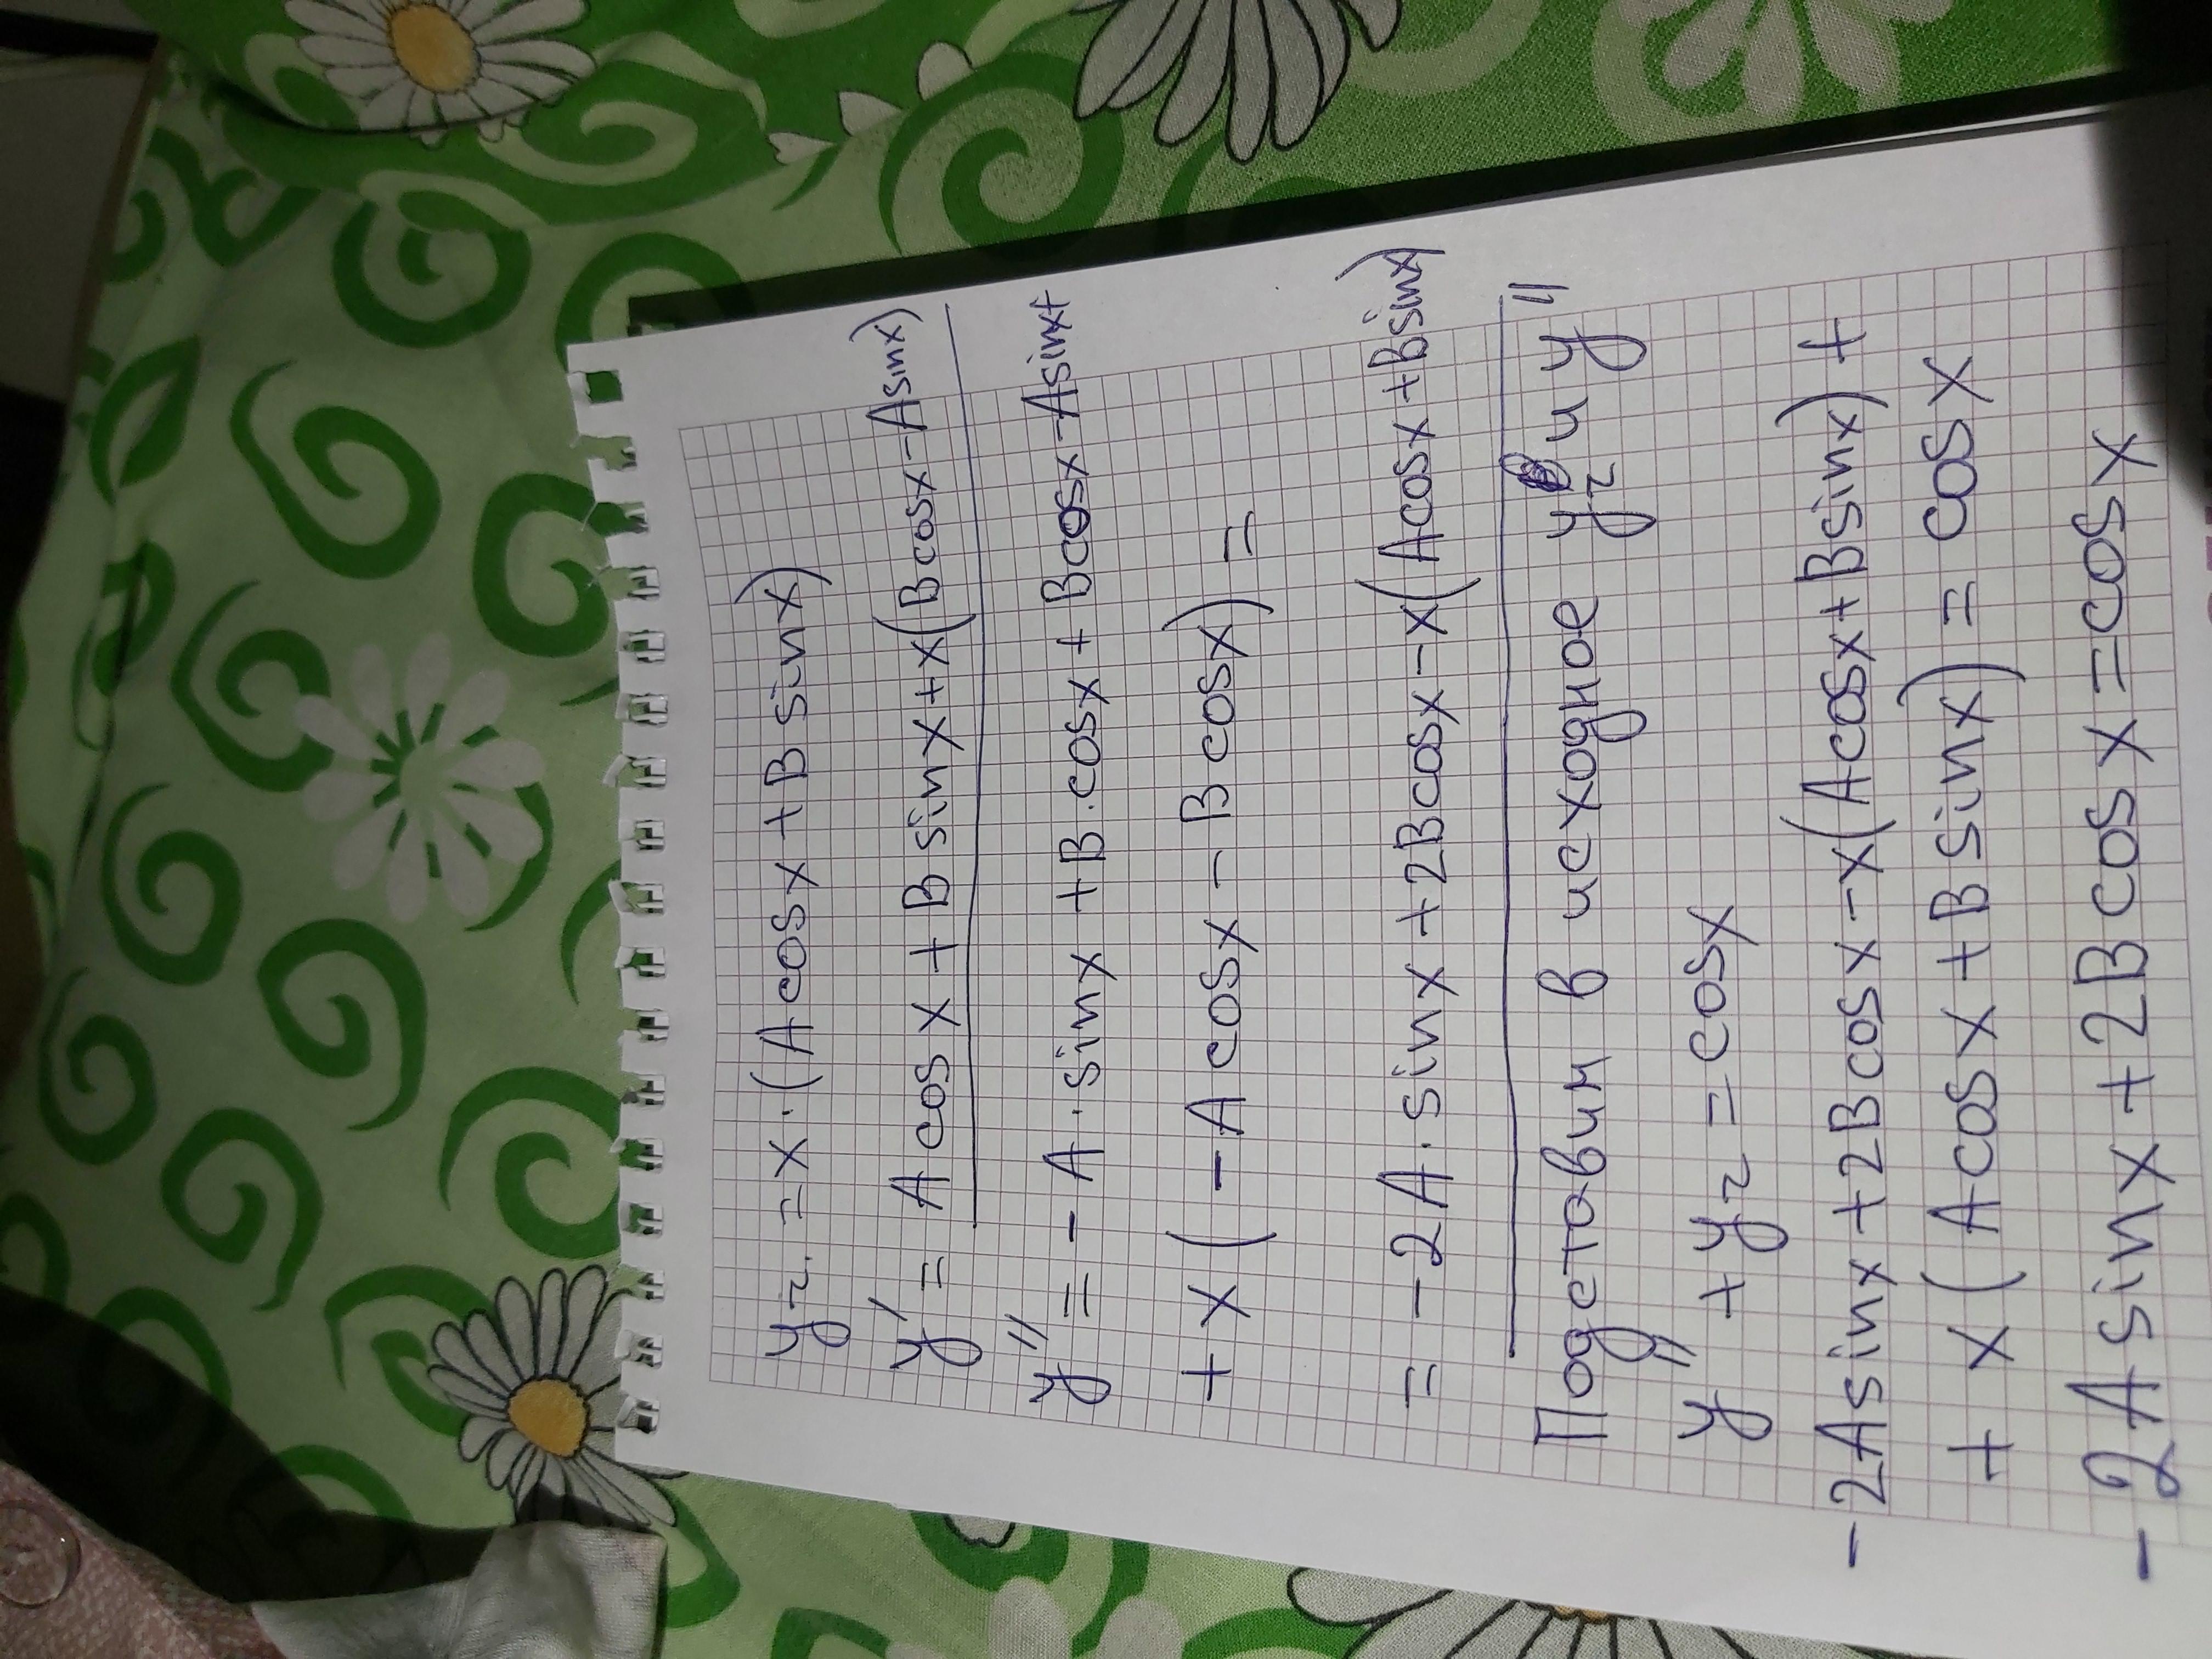 y₂. = x·(A cos x + B sin x)
y' = A cos x + B sin x + x(B cos x - A sin x)
y'' = - A · sin x + B · cos x + B cos x - A sin x +
+ x (- A cos x - B cos x) =
= - 2A · sin x + 2B cos x - x(A cos x + B sin x)
Подставим в исходное y₂ и y''
y'' + y₂ = cos x
- 2A sin x + 2B cos x - x(A cos x + B sin x) +
+ x (A cos x + B sin x) = cos x
- 2A sin x + 2B cos x = cos x